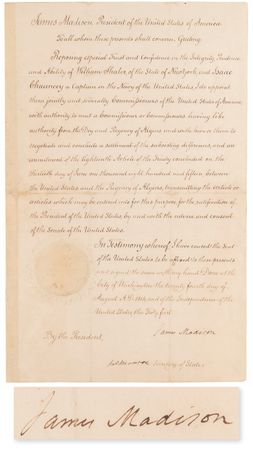 James Madison President of the United States of America
To all whom these presents shall concern, Greeting.
Reposing especial Trust and Confidence in the Integrity, Prudence
and Ability of William Shaler of the State of New York and Isaac
Chauncey a Captain in the Navy of the United States I do appoint
them jointly and severally Commissioners of the United States of America
with authority to meet a Commissioner or Commissioners having like
authority from the Dey and Regency of Algiers and with him or them to
negotiate and conclude a settlement of the subsisting differences and an
amendment of the Eighteenth Article of the Treaty concluded on the
thirtieth day of June one thousand eight hundred and fifteen between
the United States and the Regency of Algiers, transmitting the article or
articles which may be entered into for this purpose, for the ratification of
the President of the United States, by and with the advice and consent
of the Senate of the United States.
In Testimony whereof I have caused the Seal
of the United States to be affixed to these presents
and signed the same with my hand Done at the
City of Washington the twenty fourth day of
August A.D. 1816 and of the Independence of the
United States the Forty first
James Madison
By the President,
Jas Monroe Secretary of State
James Madison